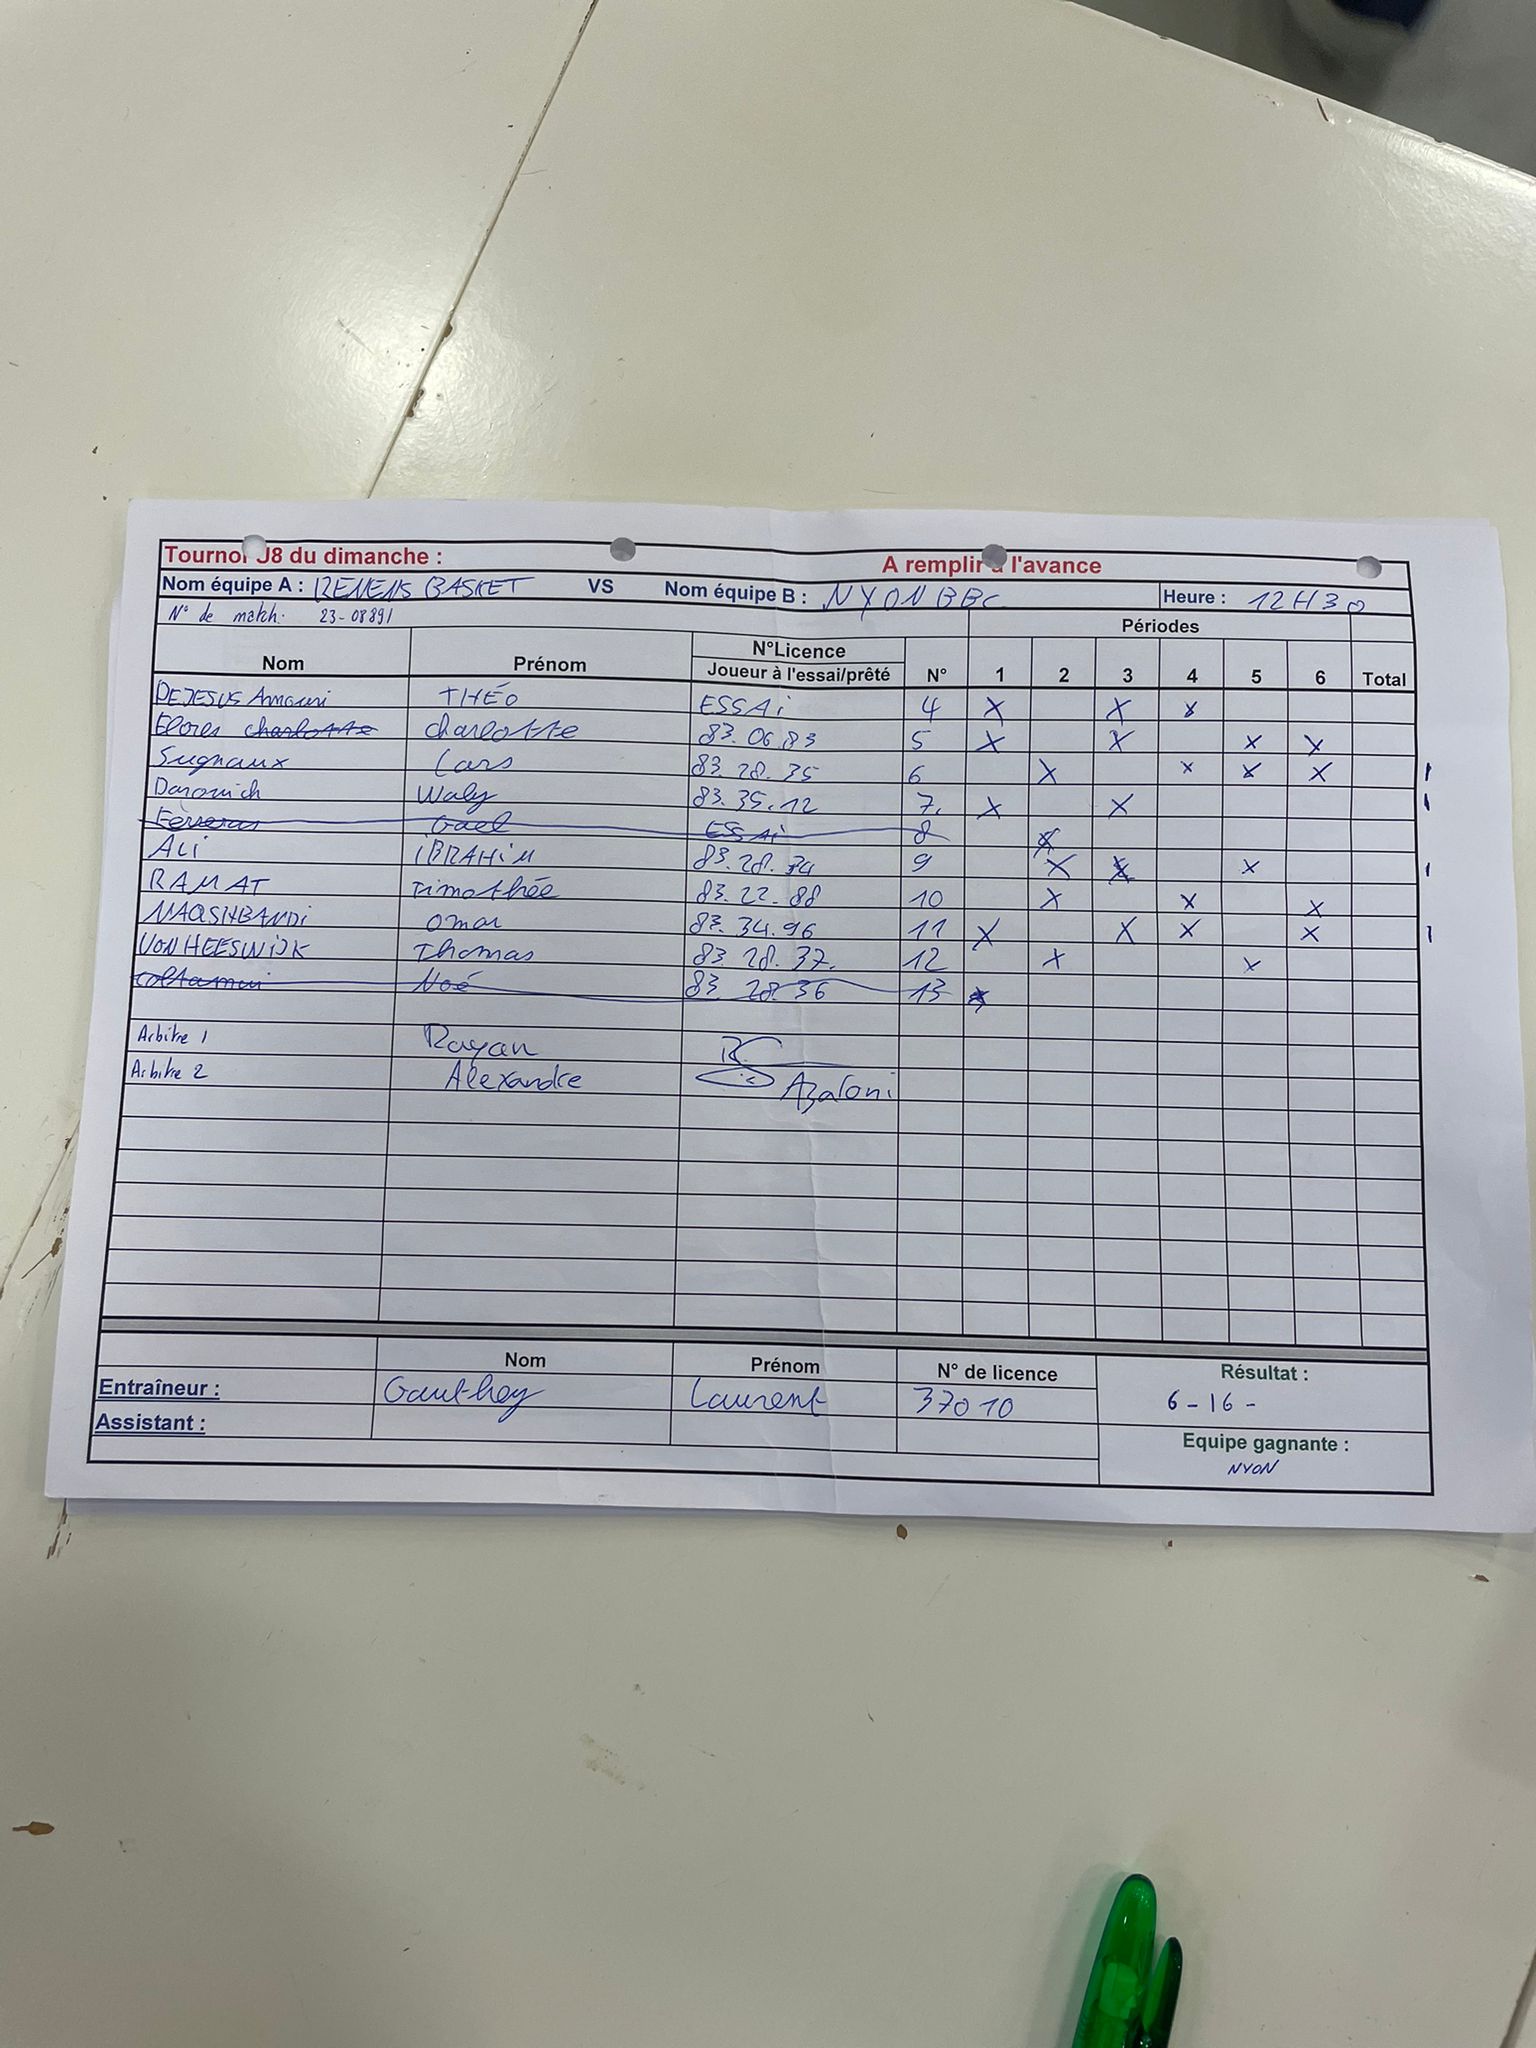 Tournoi J8 du dimanche : A remplir à l'avance
Nom équipe A : RENENS BASKET VS Nom équipe B : NYON BBC Heure : 12H30
N° de match. 23-08891 Périodes
Nom Prénom N°Licence N° 1 2 3 4 5 6 Total
Joueur à l'essai/prêté
DEJESUS Amouri THÉO ESSAi 4 X X X
Flores charlotte charlotte 83.06.83 5 X X X X
Sugnaux Lars 83.28.35 6 X X X X 1
Darowich Waly 83.35.12 7. X X 1
Gael ESSAi 8 X
ALi iBRAHiM 83.28.34 9 X X X 1
RAMAT Timothée 83.22.88 10 X X X
NAQSHBANDi Omar 83.34.96 11 X X X X 1
VONHEESWIJK Thomas 83.28.37. 12 X X
Noé 83.28.36 13 X
Arbitre 1 Rayan
Arbitre 2 Alexandre Azaloni
Nom Prénom N° de licence Résultat :
Entraîneur : Gauthey Laurent 37010 6-16-
Assistant : Equipe gagnante :
NYON